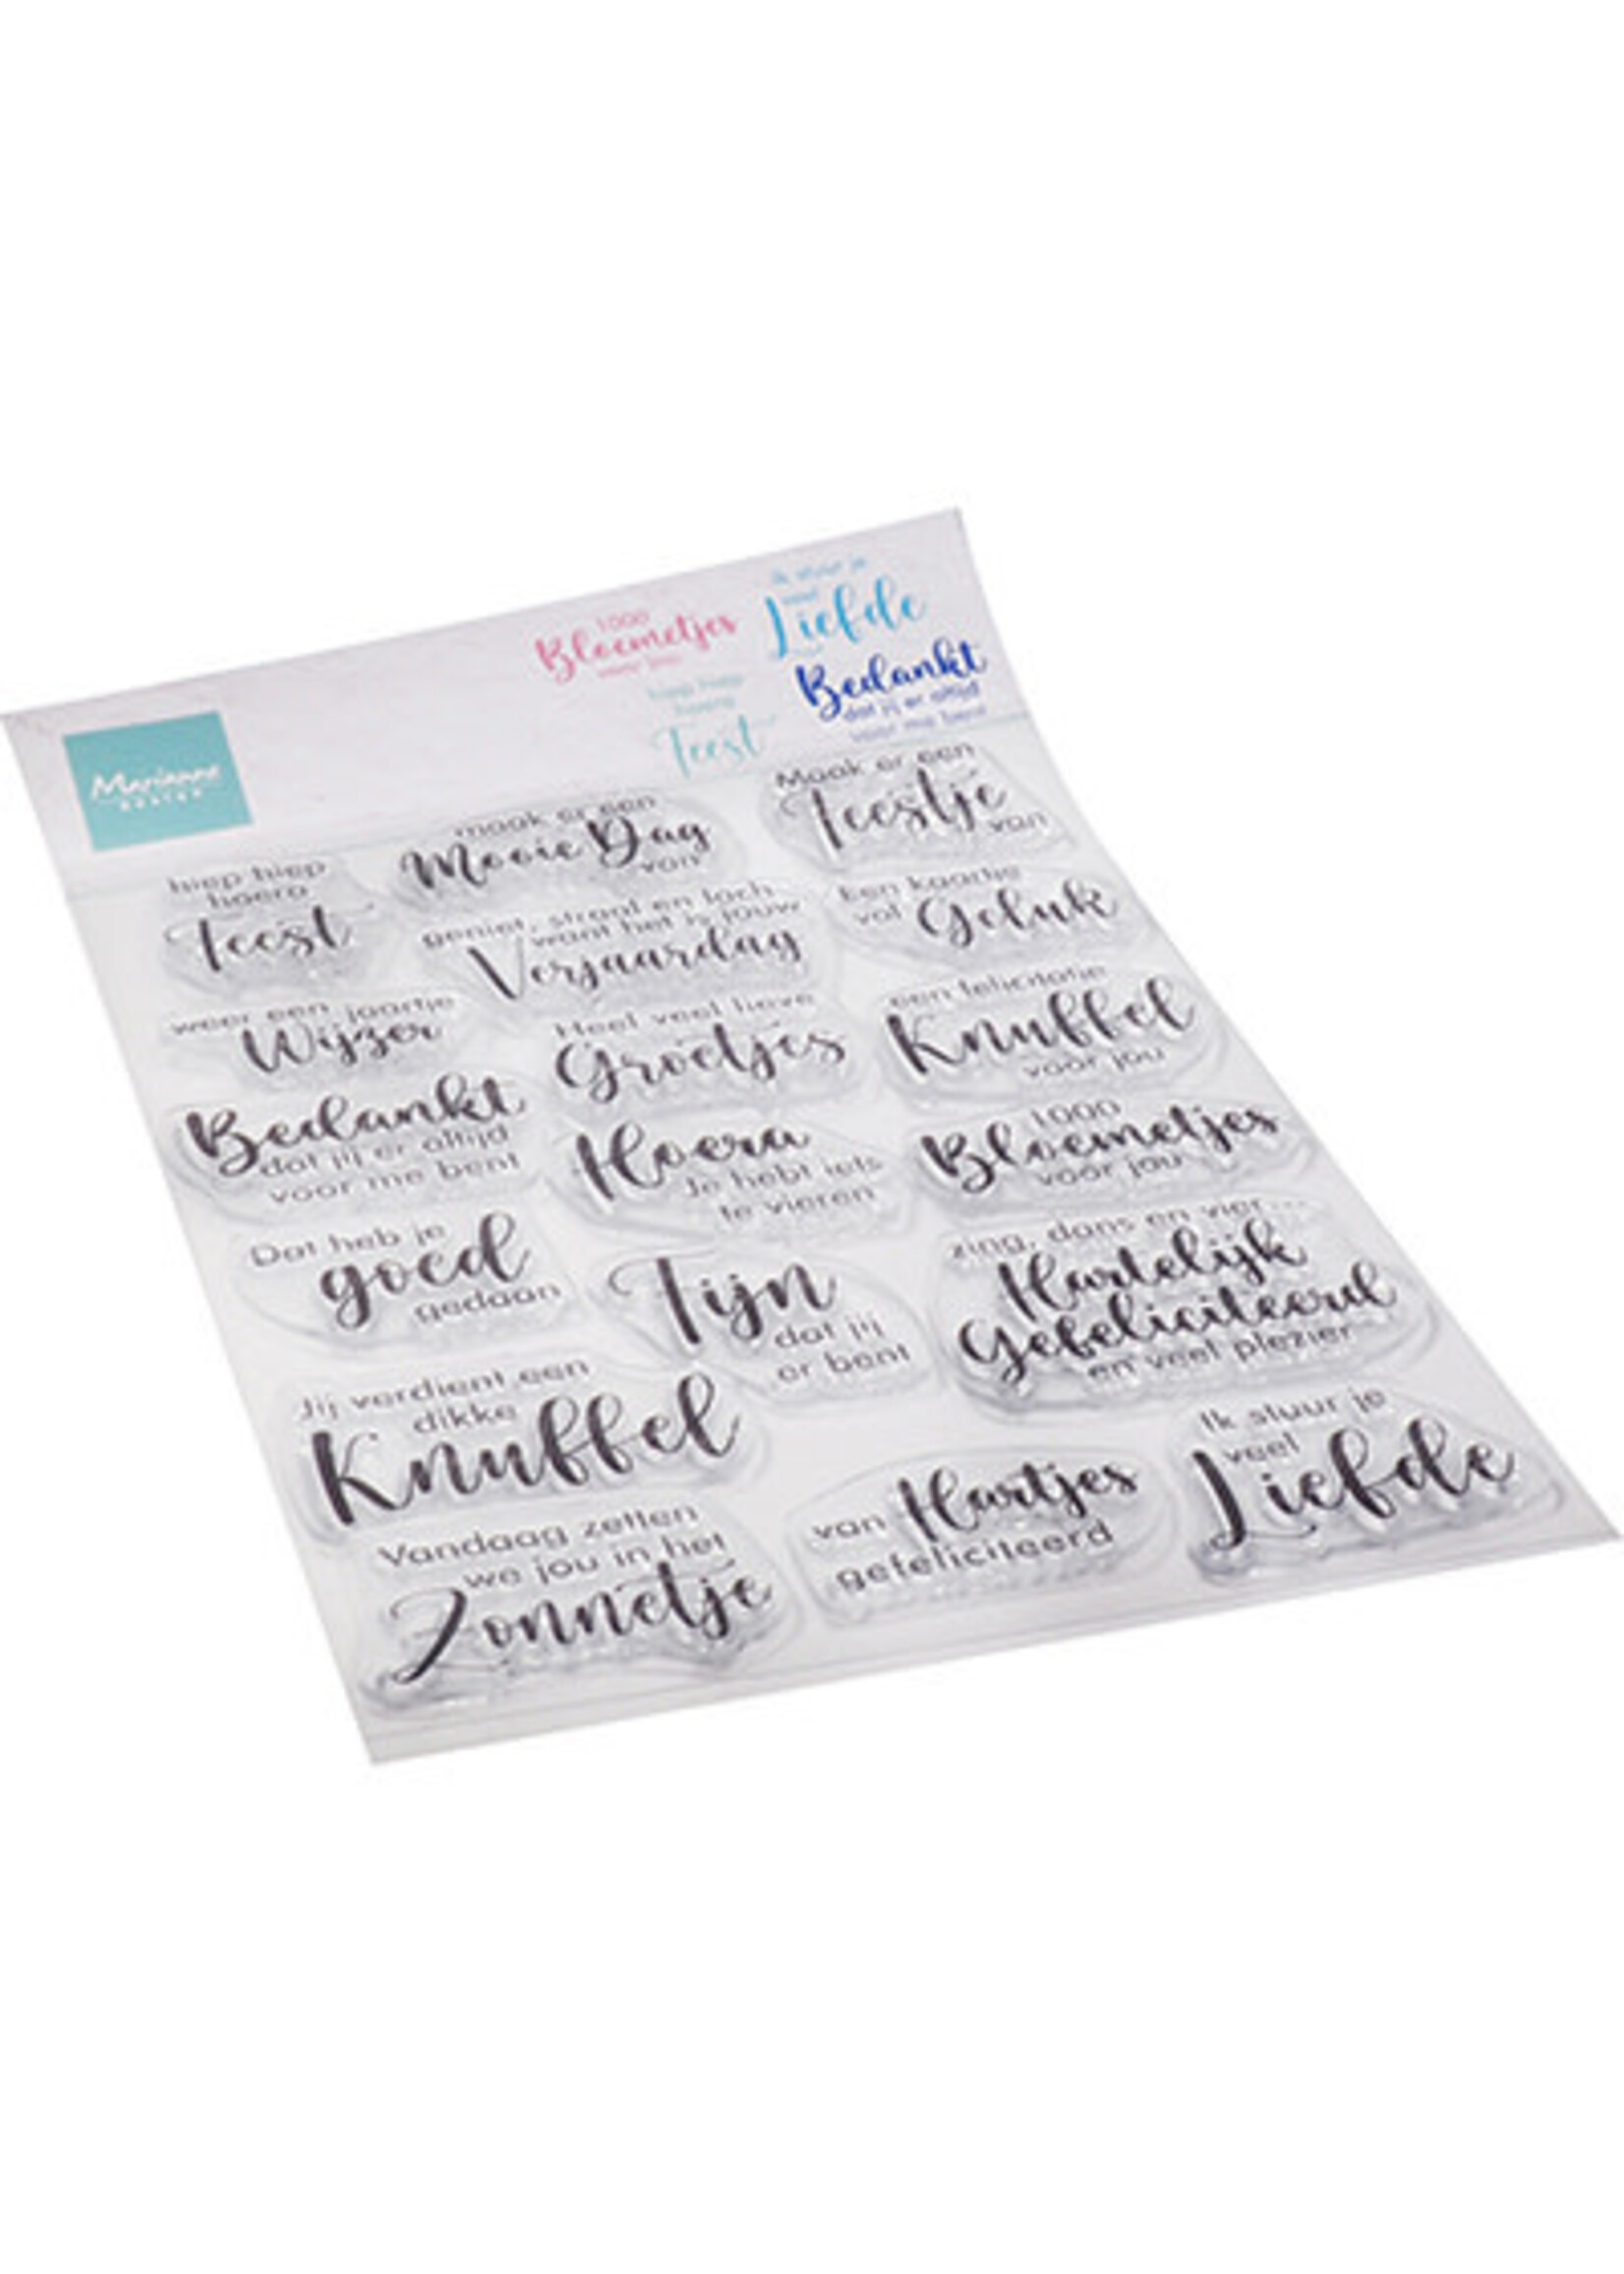 1000
Bloemetjes
voor jou
ik stuur je
veel
Liefde
hiep hiep
hoera
Feest
Bedankt
dat jij er altijd
voor me bent
Marianne
DESIGN
hiep hiep
hoera
Feest
maak er een
Mooie Dag
van
Maak er een
Feestje
van
geniet, straal en lach
want het is jouw
Verjaardag
Een kaartje
vol Geluk
weer een jaartje
Wijzer
Heel veel lieve
Groetjes
een felicitatie
Knuffel
voor jou
Bedankt
dat jij er altijd
voor me bent
Hoera
Je hebt iets
te vieren
1000
Bloemetjes
voor jou
Dat heb je
goed
gedaan
Fijn
dat jij
er bent
zing, dans en vier...
Hartelijk
Gefeliciteerd
en veel plezier
Jij verdient een
dikke
Knuffel
van Hartjes
gefeliciteerd
Ik stuur je
veel
Liefde
Vandaag zetten
we jou in het
Zonnetje